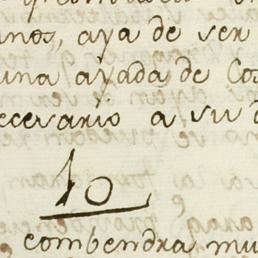 anos, aya de ser
una ayada de Cos
ecesario a su d
10
combendra mu